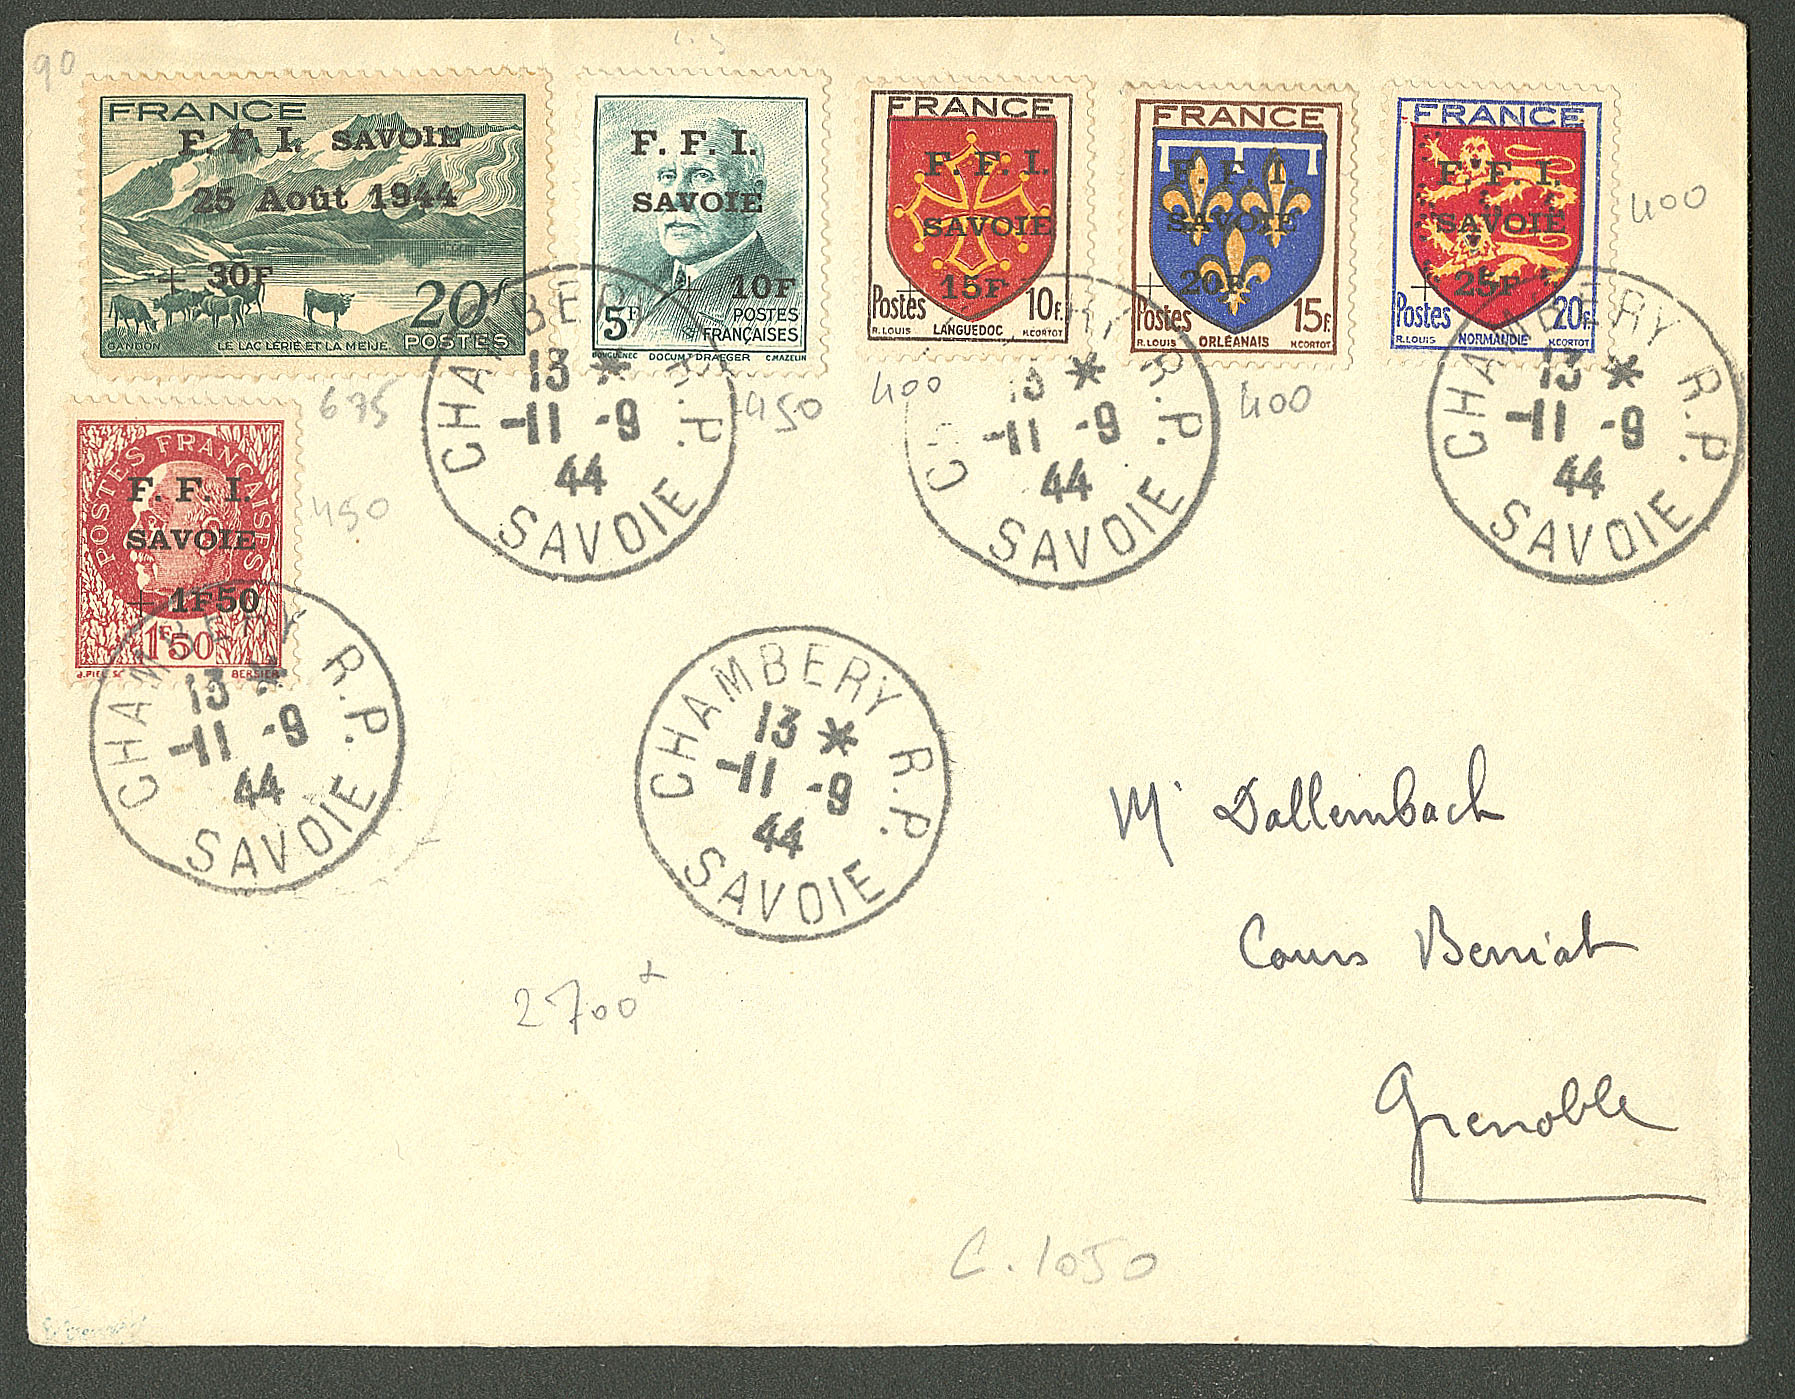 90
FRANCE
F. F. I. SAVOIE
25 Août 1944
+ 30F
20F
POSTES
GANDON
LE LAC LERIE ET LA MEIJE
F. F. I.
SAVOIE
+ 10F
5F
POSTES
FRANÇAISES
DOCUMT DRAEGER
C.MAZELIN
FRANCE
F. F. I.
SAVOIE
+ 15F
Postes
10F.
R.LOUIS
LANGUEDOC
H.CORTOT
FRANCE
F. F. I.
SAVOIE
+ 20F
Postes
15F.
R.LOUIS
ORLÉANAIS
H.CORTOT
FRANCE
F. F. I.
SAVOIE
+ 25F
Postes
20F.
R.LOUIS
NORMANDIE
H.CORTOT
400
675
450
400
400
CHAMBERY R.P.
13 *
-11 -9
44
SAVOIE
CHAMBERY R.P.
13 *
-11 -9
44
SAVOIE
CHAMBERY R.P.
13 *
-11 -9
44
SAVOIE
POSTES FRANÇAISES
F. F. I.
SAVOIE
+ 1F50
1F50
BERSIER
450
CHAMBERY R.P.
13 *
-11 -9
44
SAVOIE
CHAMBERY R.P.
13 *
-11 -9
44
SAVOIE
Mr Dallembach
Cours Berriat
Grenoble
2700
C. 1050